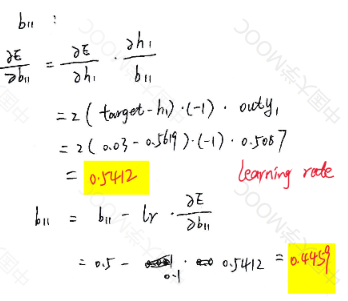 b₁₁ :
∂E/∂b₁₁ = ∂E/∂h₁ · ∂h₁/b₁₁
= 2 ( target - h₁) · (-1) · outy₁
= 2 ( 0.03 - 0.5619 ) · (-1) · 0.5087
= 0.5412
learning rate
b₁₁ = b₁₁ - lr · ∂E/∂b₁₁
= 0.5 - 0.1 · 0.5412 = 0.4459
中国大学MOOC